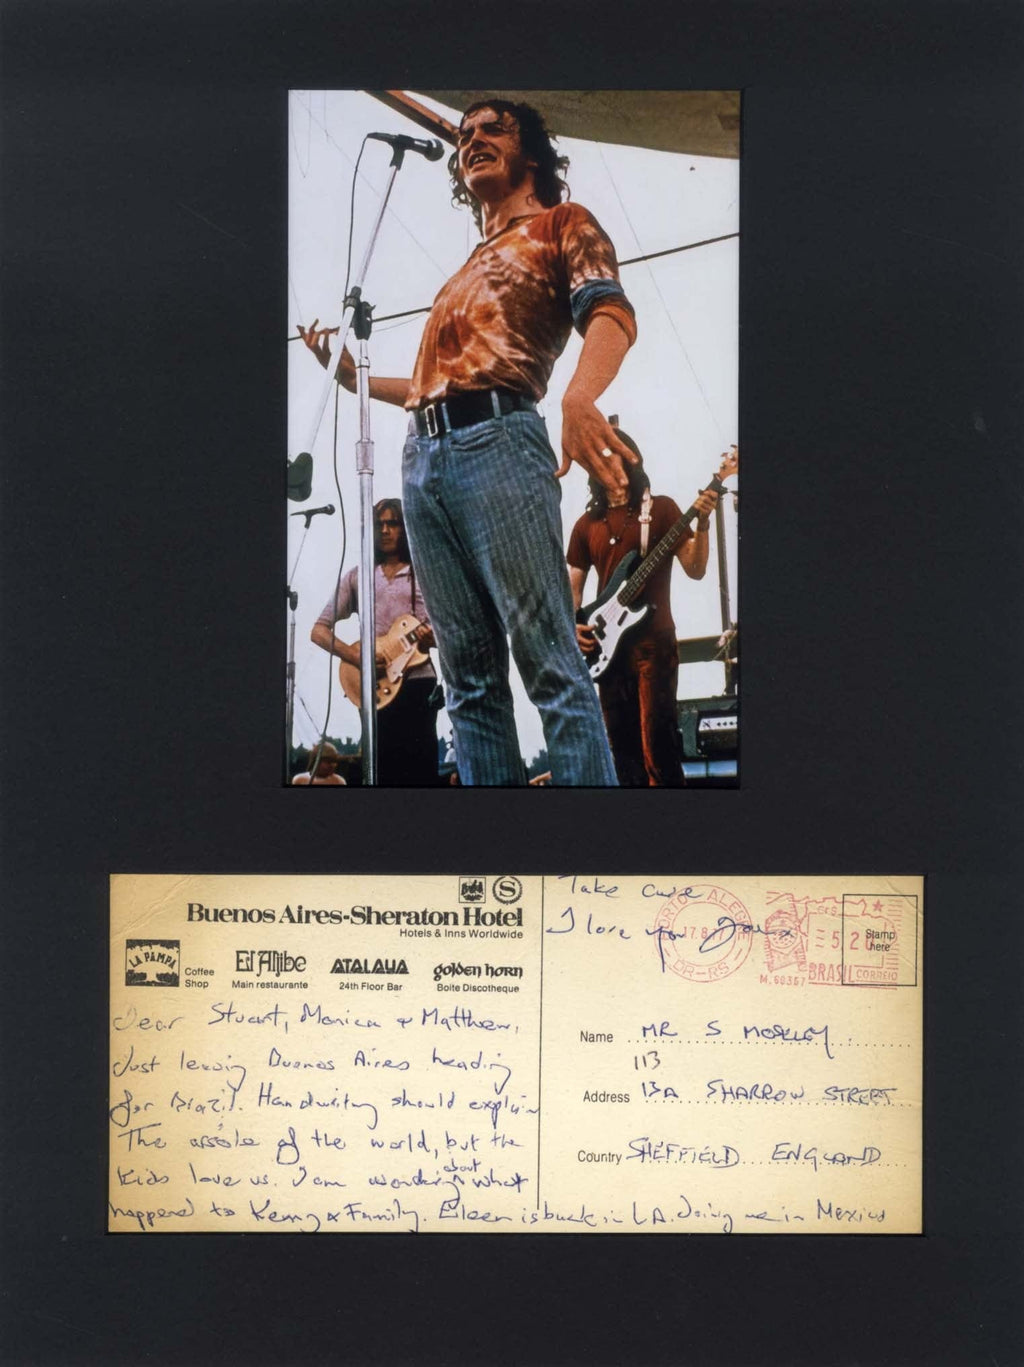 Buenos Aires-Sheraton Hotel
Hotels & Inns Worldwide
LA PAMPA
Coffee
Shop
El Aljibe
Main restaurante
ATALAYA
24th Floor Bar
golden horn
Boite Discotheque
Dear Stuart, Monica & Matthew,
Just leaving Buenos Aires heading
for Brazil. Handwriting should explain
The assole of the world, but the
Kids love us. I am wondering about what
happened to Kenny & Family. Eileen is back in LA. doing me in Mexico
Take care
I love you
PORTO ALEGRE
17.8.77
DR-RS
M. 60367
BRASIL CORREIO
Stamp
here
Name MR S MORLEY
113
Address 13A SHARROW STREET
Country SHEFFIELD ENGLAND